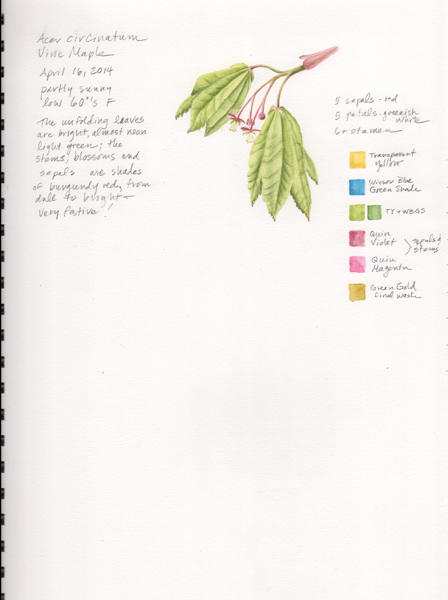 Acer circinatum
Vine Maple
April 16, 2014
partly sunny
low 60°'s F
The unfolding leaves
are bright, almost neon
light green; the
stems, blossoms and
sepals are shades
of burgundy red, from
dull to bright -
very festive!
5 sepals - red
5 petals - greenish
white
6+ stamen
Transparent
Yellow
Winsor Blue
Green Shade
TY + WBGS
Quin
Violet
sepals &
stems
Quin
Magenta
Green Gold
final wash